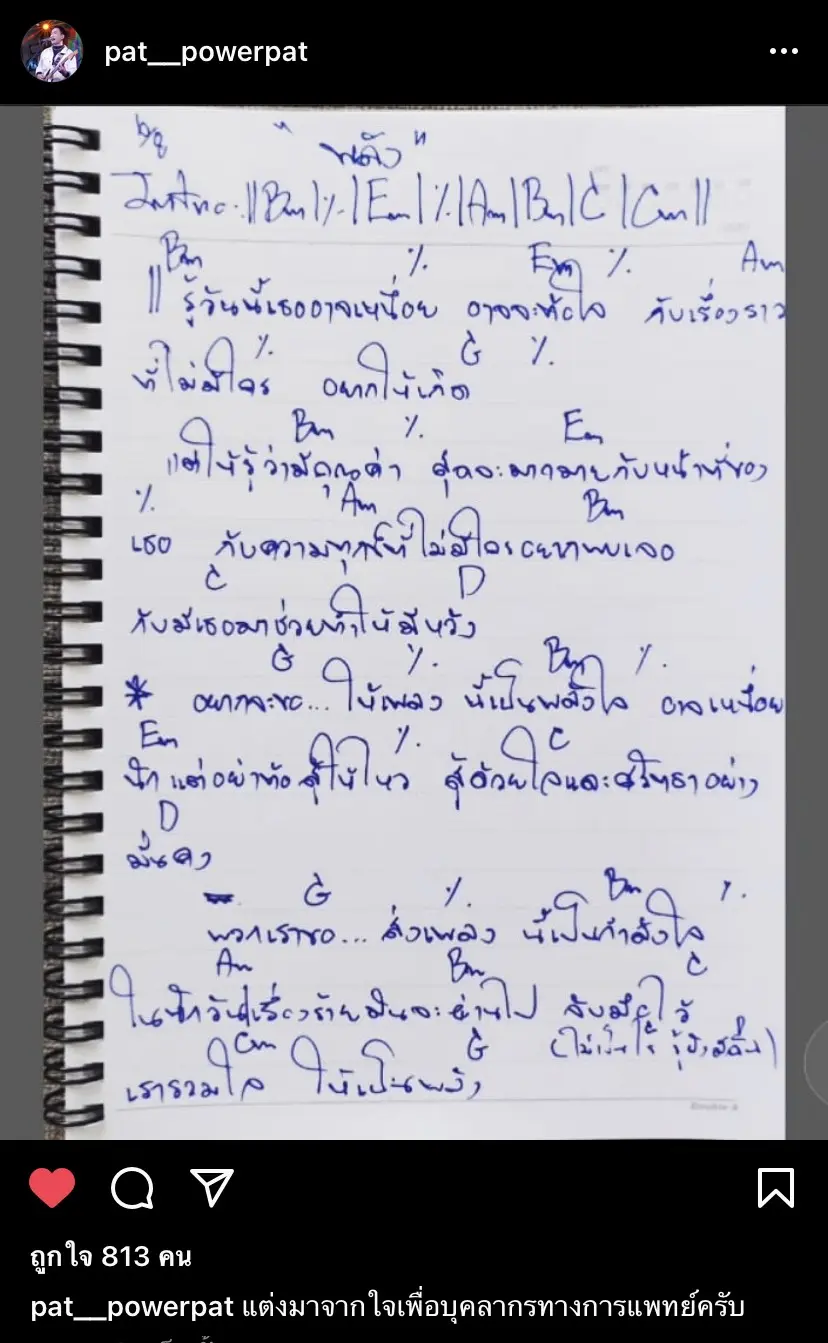 pat__powerpat
6/8
"พลัง"
Intro : || Bm | ٪ | Em | ٪ | Am | Bm | C | Cm ||
Bm ٪ Em ٪ Am
|| รู้วันนี้เธออาจเหนื่อย อาจจะท้อใจ กับเรื่องราว
٪ G ٪
ที่ไม่มีใคร อยากให้เกิด
Bm ٪ Em
แต่ให้รู้ว่ามีคุณค่า สุดจะมากมายกับหน้าที่ของ
٪ Am Bm
เธอ กับความทุกข์ที่ไม่มีใครอยากพบเจอ
C D
กับมีเธอมาช่วยทำให้มีหวัง
G ٪ Bm ٪
* อยากจะขอ... ให้เพลง นี้เป็นพลังใจ อาจเหนื่อย
Em ٪ C
นัก แต่อย่าท้อ สู้ให้ไหว สู้ด้วยใจและศรัทธาอย่าง
D
มั่นคง
G ٪ Bm ٪
พวกเราขอ... ส่งเพลง นี้เป็นกำลังใจ
Am Bm C
ในทุกวันเรื่องร้ายมันจะผ่านไป จับมือไว้
Cm G
เรารวมใจ ให้เป็นพลัง
ถูกใจ 813 คน
pat__powerpat แต่งมาจากใจเพื่อบุคลากรทางการแพทย์ครับ